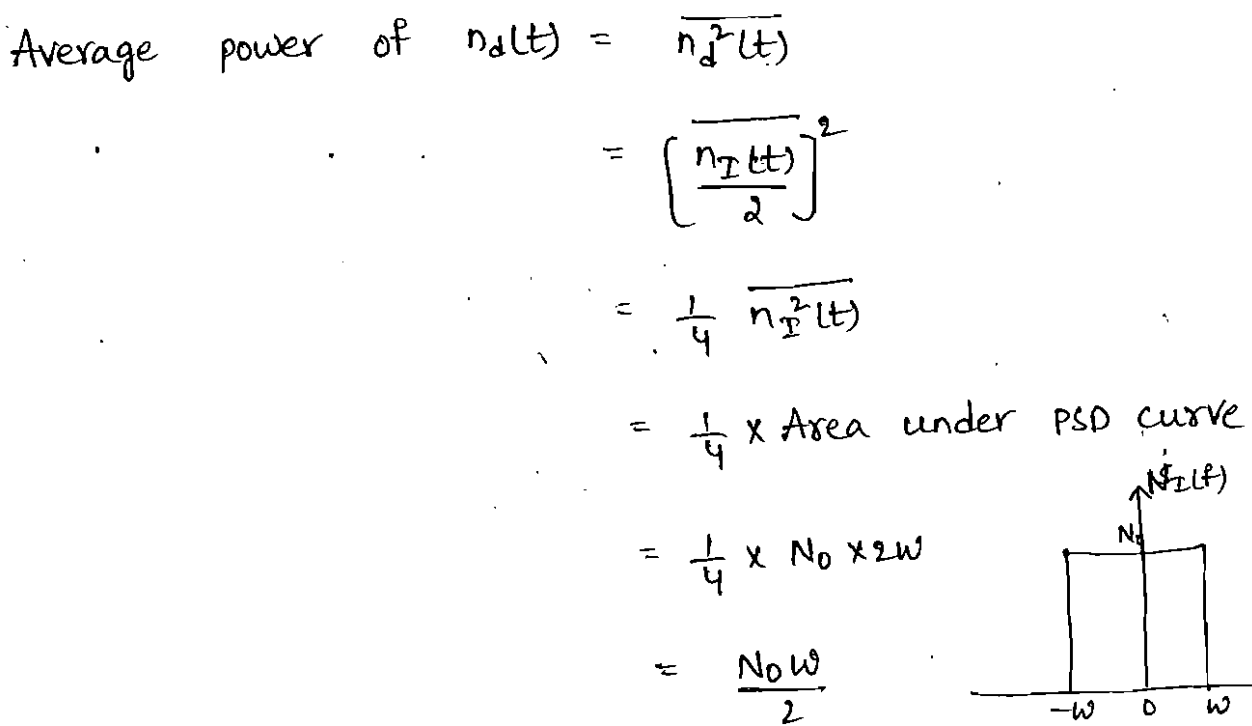 Average power of n_d(t) = \overline{n_d^2(t)}
= [\overline{\frac{n_I(t)}{2}}]^2
= \frac{1}{4} \overline{n_I^2(t)}
= \frac{1}{4} x Area under PSD curve
N_I(f)
N_0
= \frac{1}{4} x N_0 x 2W
= \frac{N_0 W}{2}
-W 0 W